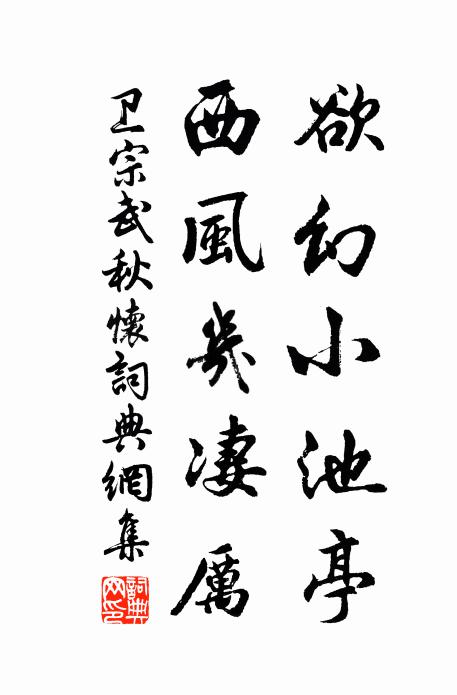 欲幻小池亭
西風幾凄厲
卫宗武秋懷詞典網集
詞典